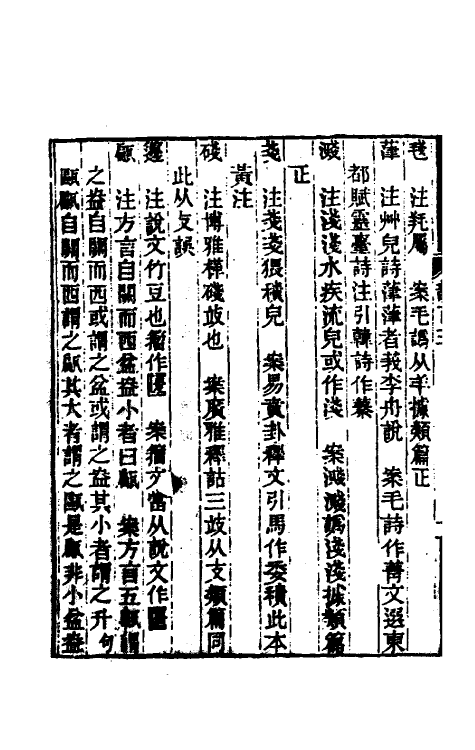 注㲘屬　案毛譌从手據類篇正
䔂　注艸皃詩䔂䔂者莪李舟說　案毛詩作菁文選東
都賦靈臺詩注引韓詩作蓁
濺　注淺淺水疾流皃或作淺　案濺濺譌淺淺據類篇
正
戔　注戔戔猥積皃　案易賁卦釋文引馬作委積此本
黃注
碊　注博雅㯠碊攱也　案廣雅釋詁三攱从支類篇同
此从攴誤
籩　注說文竹豆也籀作　案籀文當从說文作
甂　注方言自關而西盆盎小者曰甂　案方言五甂謂
之盎自關而西或謂之盆或謂之盎其小者謂之升句
甌甂自關而西謂之甂其大者謂之甌是甂非小盆盎